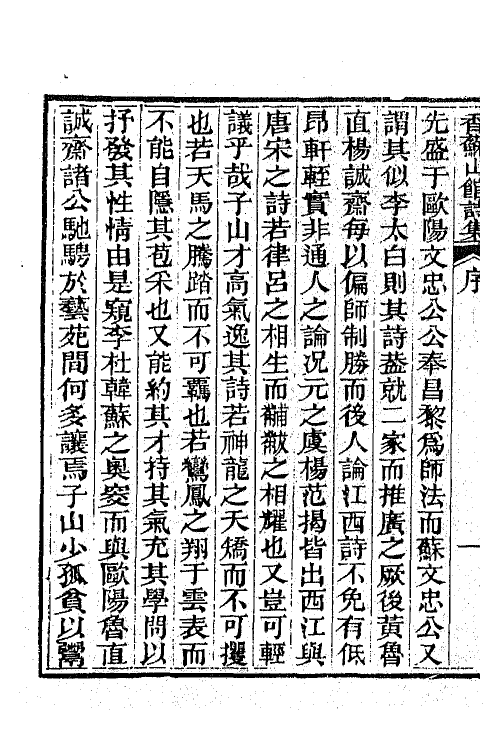 香蘇山館詩集 序 一
先盛于歐陽文忠公公奉昌黎爲師法而蘇文忠公又
謂其似李太白則其詩葢就二家而推廣之厥後黃魯
直楊誠齋每以偏師制勝而後人論江西詩不免有低
昂軒輊實非通人之論況元之虞楊范揭皆出西江與
唐宋之詩若律呂之相生而黼黻之相耀也又豈可輕
議乎哉子山才高氣逸其詩若神龍之天矯而不可攖
也若天馬之騰踏而不可羈也若鸞鳳之翔于雲表而
不能自隱其苞采也又能約其才持其氣充其學問以
抒發其性情由是窺李杜韓蘇之奥窔而與歐陽魯直
誠齋諸公馳騁於藝苑間何多讓焉子山少孤貧以鬻